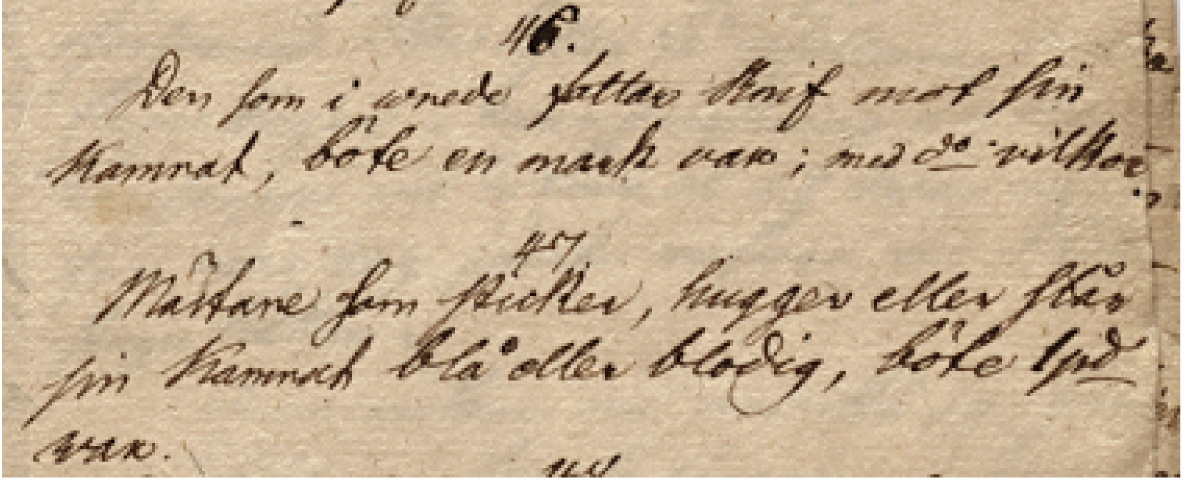 46.
Den som i wrede fattar Knif mot sin
Kamrat, böte en mark vax; med do vilkor.
47
Mästare som sticker, hugger eller slår
sin Kamrat blå eller blodig, böte lpd
vax.
48